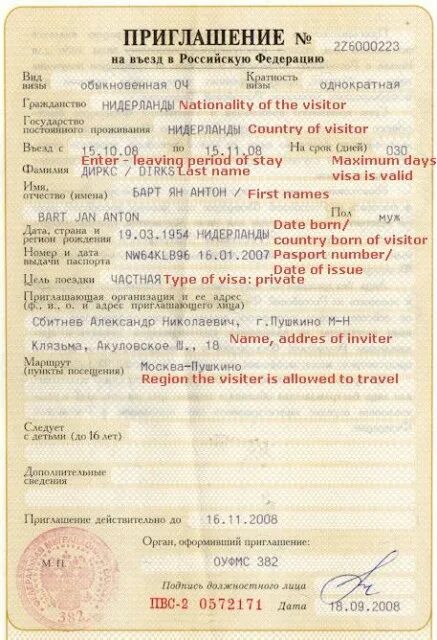 ПРИГЛАШЕНИЕ № 2Z6000223
на въезд в Российскую Федерацию
Вид визы обыкновенная ОЧ Кратность визы однократная
Гражданство НИДЕРЛАНДЫ Nationality of the visitor
Государство
постоянного проживания НИДЕРЛАНДЫ Country of visitor
Въезд с 15.10.08 по 15.11.08 На срок (дней) 030
Enter - leaving period of stay Maximum days
visa is valid
Фамилия ДИРКС / DIRKS Last name
Имя,
отчество (имена) БАРТ ЯН АНТОН / First names
BART JAN ANTON Пол муж
Дата, страна и
регион рождения 19.03.1954 НИДЕРЛАНДЫ Date born/
country born of visitor
Номер и дата
выдачи паспорта NW64KLB96 16.01.2007 Pasport number/
Date of issue
Цель поездки ЧАСТНАЯ Type of visa: private
Приглашающая организация и ее адрес
(ф., и., о. и адрес приглашающего лица)
Сбитнев Александр Николаевич, г.Пушкино М-Н
Клязьма, Акуловское Ш., 18 Name, addres of inviter
Маршрут
(пункты посещения) Москва-Пушкино
Region the visiter is allowed to travel
Следует
с детьми (до 16 лет)
Дополнительные
сведения
Приглашение действительно до 16.11.2008
Орган, оформивший приглашение:
М.П. ОУФМС 382
Подпись должностного лица
382
ПВС-2 0572171 Дата 18.09.2008